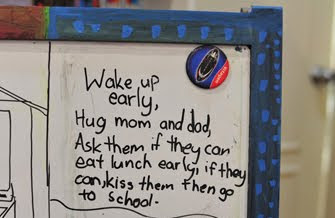 Wake up
early,
Hug mom and dad,
Ask them if they can
eat lunch early, if they
can, kiss them then go
to school.